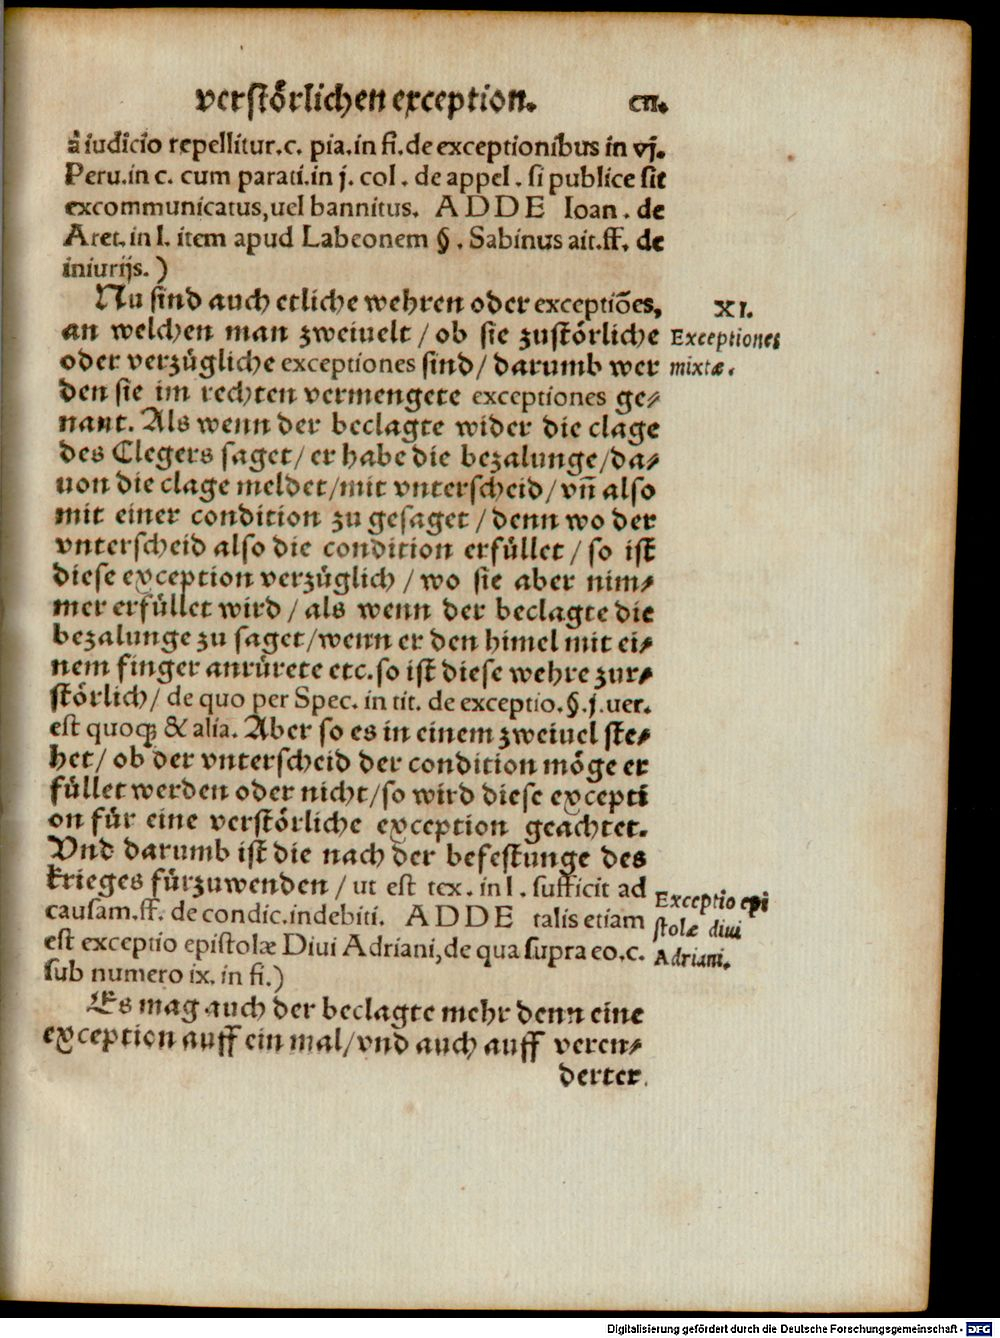 verstörlichen exception. cij.
à iudicio repellitur.c. pia.in fi.de exceptionibus in vj.
Peru.in c. cum parati.in j. col. de appel. si publice sit
excommunicatus,uel bannitus. ADDE Ioan. de
Aret.in l. item apud Labeonem §. Sabinus ait.ff. de
iniurijs.)
Nu sind auch etliche wehren oder exceptiões,
XI.
an welchen man zweiuelt/ ob sie zustörliche
Exceptiones
oder verzügliche exceptiones sind/ darumb wer
mixtæ.
den sie im rechten vermengete exceptiones ge⸗
nant. Als wenn der beclagte wider die clage
des Clegers saget/ er habe die bezalunge/da⸗
uon die clage meldet/mit vnterscheid/ vñ also
mit einer condition zu gesaget/ denn wo der
vnterscheid also die condition erfüllet/ so ist
diese exception verzüglich/ wo sie aber nim⸗
mer erfüllet wird/ als wenn der beclagte die
bezalunge zu saget/wenn er den himel mit ei⸗
nem finger anrürete etc.so ist diese wehre zur⸗
störlich/ de quo per Spec. in tit. de exceptio.§.j.uer.
est quoqꝫ & alia. Aber so es in einem zweiuel ste⸗
het/ ob der vnterscheid der condition möge er
füllet werden oder nicht/so wird diese excepti
on für eine verstörliche exception geachtet.
Vnd darumb ist die nach der befestunge des
krieges fürzuwenden/ ut est tex. in l. sufficit ad
Exceptio epi
causam.ff. de condic.indebiti. ADDE talis etiam
stolæ diui
est exceptio epistolæ Diui Adriani,de qua supra eo.c.
Adriani.
sub numero ix. in fi.)
Es mag auch der beclagte mehr denn eine
exception auff ein mal/vnd auch auff veren⸗
derter
Digitalisierung gefördert durch die Deutsche Forschungsgemeinschaft - DFG